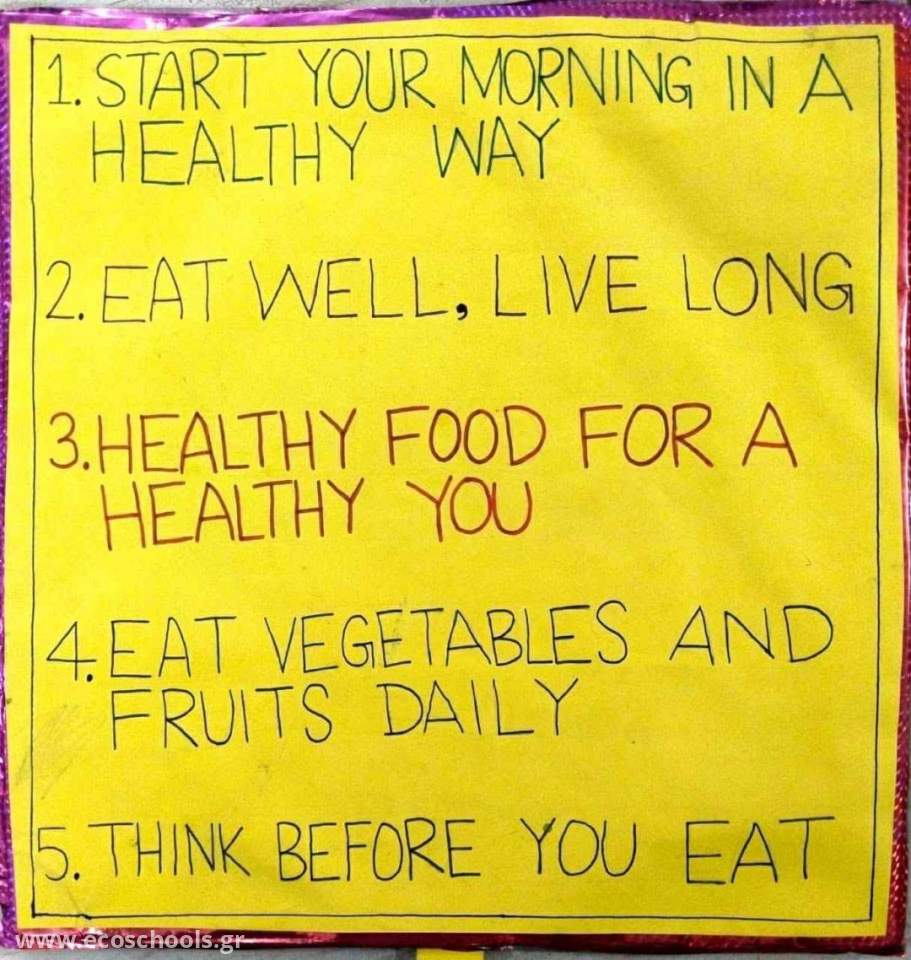 1. START YOUR MORNING IN A
HEALTHY WAY
2. EAT WELL, LIVE LONG
3. HEALTHY FOOD FOR A
HEALTHY YOU
4. EAT VEGETABLES AND
FRUITS DAILY
5. THINK BEFORE YOU EAT
www.ecoschools.gr